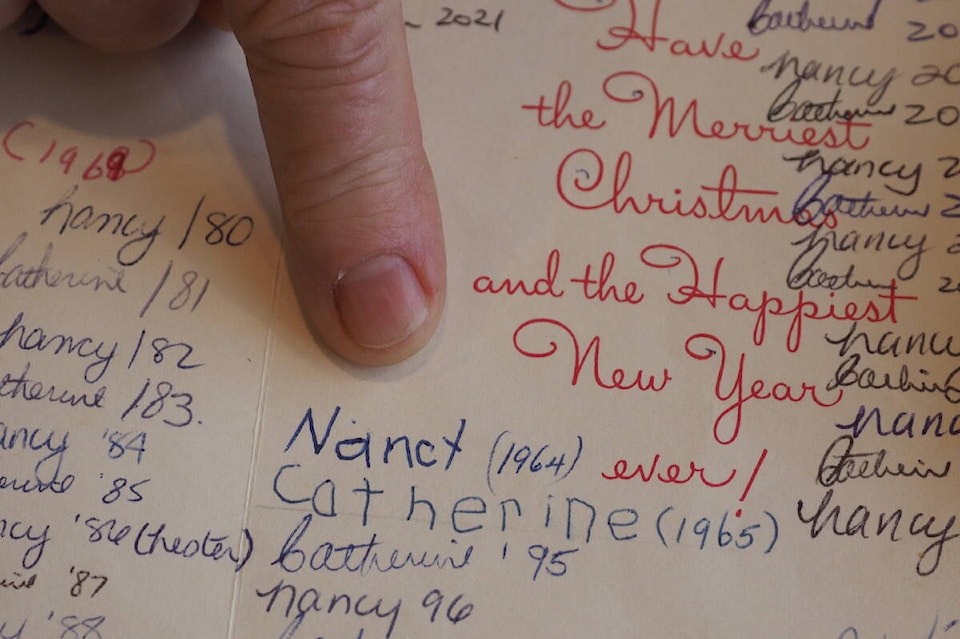 2021
(1969)
nancy /80
Catherine /81
nancy /82
therine /83.
ancy '84
'85
ncy '86 (Chester)
'87
'88
Nancy (1964)
Catherine (1965)
Catherine '95
nancy 96
Have
the Merriest
Christmas
and the Happiest
New Year
ever!
Catherine 20
nancy 20
Catherine 20
nancy 2
Catherine 2
nancy 2
Catherine 20
nancy
Catherine
nanc
Catherin
nancy